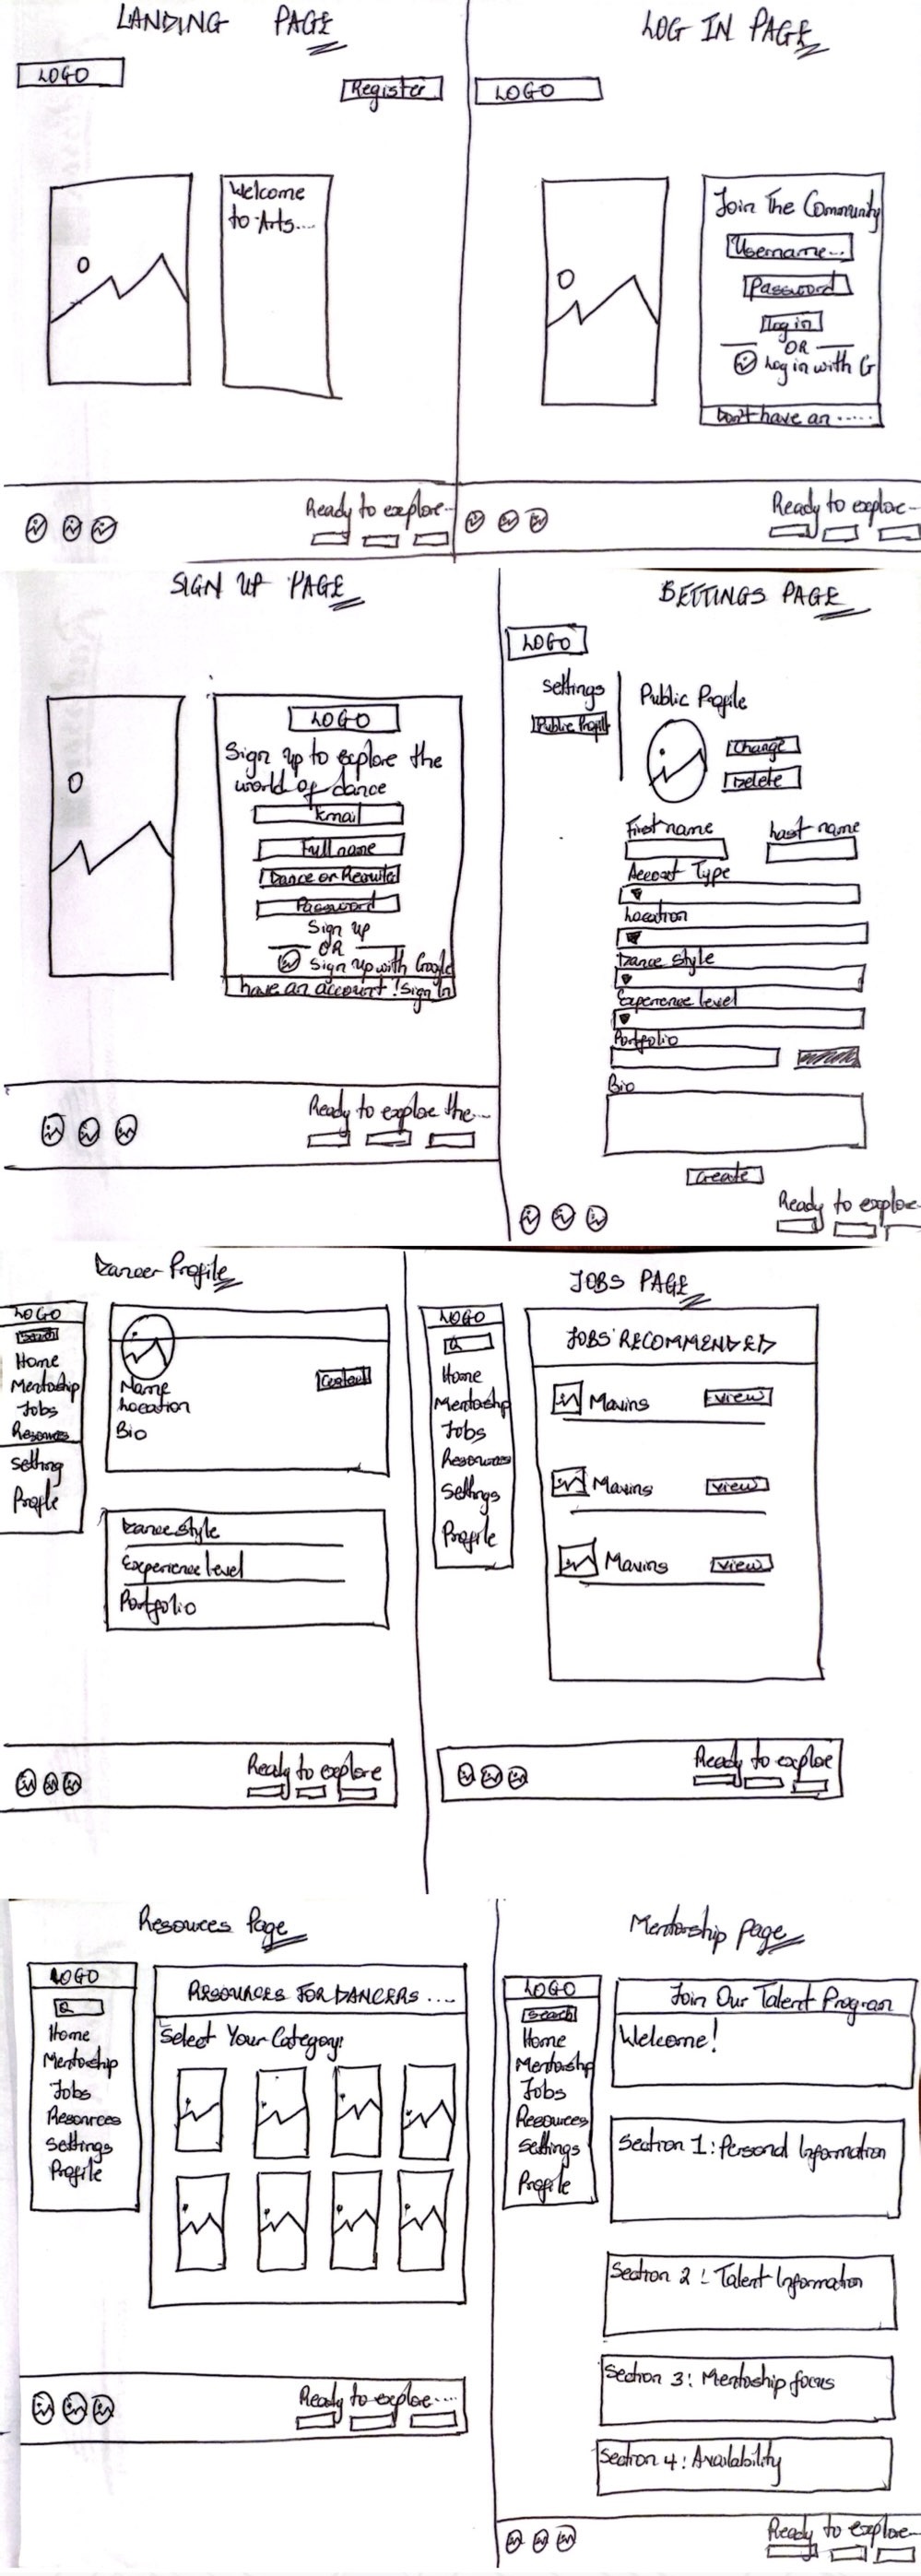 LANDING PAGE
LOGO
Register
Welcome
to Arts....
Ready to explore--
LOG IN PAGE
LOGO
Join The Community
Username...
Password
Login
OR
Log in with G
Don't have an .....
Ready to explore--
SIGN UP PAGE
LOGO
Sign up to explore the
world of dance
Email
Full name
Dance or Recruiter
Password
Sign up
OR
Sign up with Google
have an account! Sign In
Ready to explore the...
SETTINGS PAGE
LOGO
Settings
Public Profile
Public Profile
Change
Delete
First name
Last name
Account Type
Location
Dance style
Experience level
Portfolio
Bio
Create
Ready to explore
Dancer Profile
LOGO
Search
Home
Mentorship
Jobs
Resources
Setting
Profile
Name
Location
Bio
Contact
Dance style
Experience level
Portfolio
Ready to explore
JOBS PAGE
LOGO
Home
Mentorship
Jobs
Resources
Settings
Profile
JOBS RECOMMENDED
Mavins
View
Mavins
View
Mavins
View
Ready to explore
Resources Page
LOGO
Home
Mentorship
Jobs
Resources
Settings
Profile
RESOURCES FOR DANCERS ....
Select Your Category!
Ready to explore....
Mentorship page
LOGO
Search
Home
Mentorship
Jobs
Resources
Settings
Profile
Join Our Talent Program
Welcome!
Section 1: Personal Information
Section 2: Talent Information
Section 3: Mentorship focus
Section 4: Availability
Ready to explore--